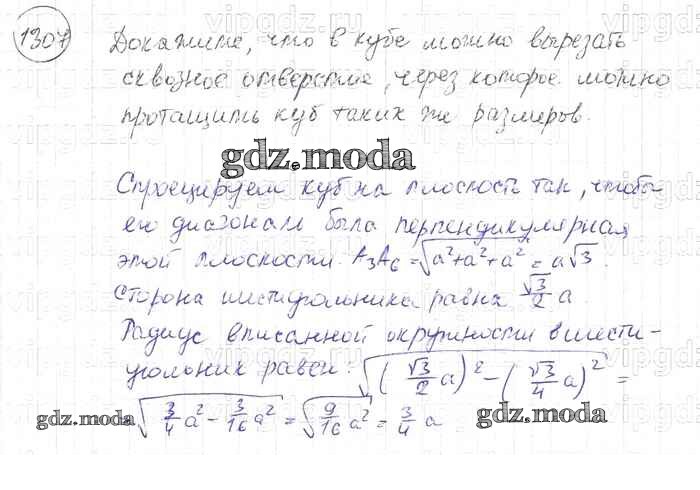 1307 Докажите, что в кубе можно вырезать
сквозное отверстие, через которое можно
протащить куб таких же размеров.
gdz.moda
Спроецируем куб на плоскость так, чтобы
его диагональ была перпендикулярная
этой плоскости. A₃A₆ = √(a²+a²+a²) = a√3.
Сторона шестиугольника равна √3/2 a.
Радиус вписанной окружности в шести-
угольник равен: √((√3/2 a)² - (√3/4 a)²) =
= √(3/4 a² - 3/16 a²) = √(9/16 a²) = 3/4 a
gdz.moda
gdz.moda